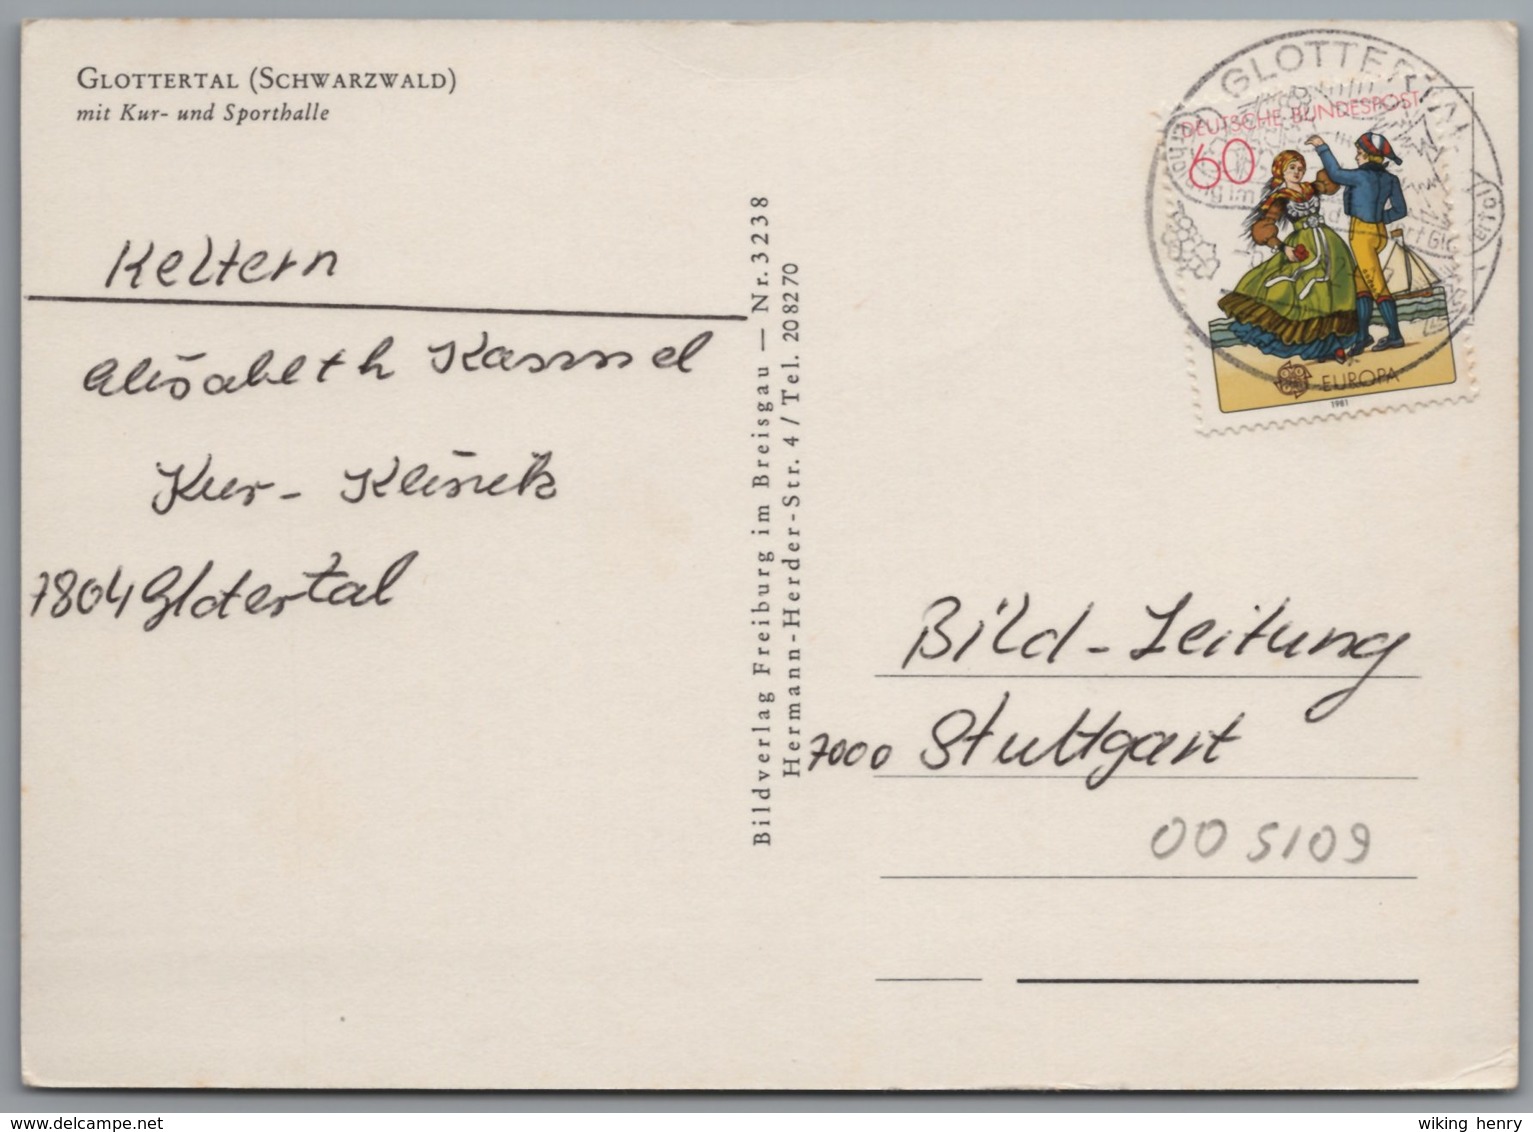 GLOTTERTAL (SCHWARZWALD)
mit Kur- und Sporthalle
Keltern
Elisabeth Kammel
Kur- Klinik
7804 Glotertal
Bildverlag Freiburg im Breisgau — Nr. 3238
Hermann-Herder-Str. 4 / Tel. 208270
GLOTTERTAL
DEUTSCHE BUNDESPOST
60
EUROPA
1981
Bild-Zeitung
7000 Stuttgart
00 5109
wiking henry